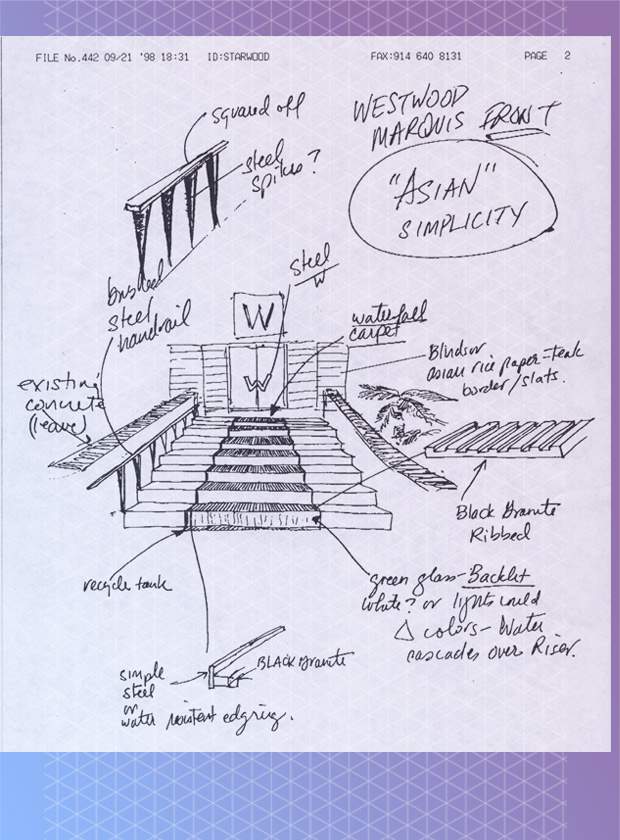 FILE No.442 09/21 '98 18:31 ID:STARWOOD FAX:914 640 8131 PAGE 2
squared off
WESTWOOD
MARQUIS FRONT
steel
spikes?
"ASIAN"
SIMPLICITY
brushed
steel
handrail
steel
W
W
W
waterfall
carpet
Blinds or
asian rice paper-teak
border/slats.
existing
concrete
(leave)
Black Granite
Ribbed
recycle tank
green glass-Backlit
white? or lights could
Δ colors-Water
cascades over Riser.
BLACK Granite
simple
steel
or
water resistent edging.